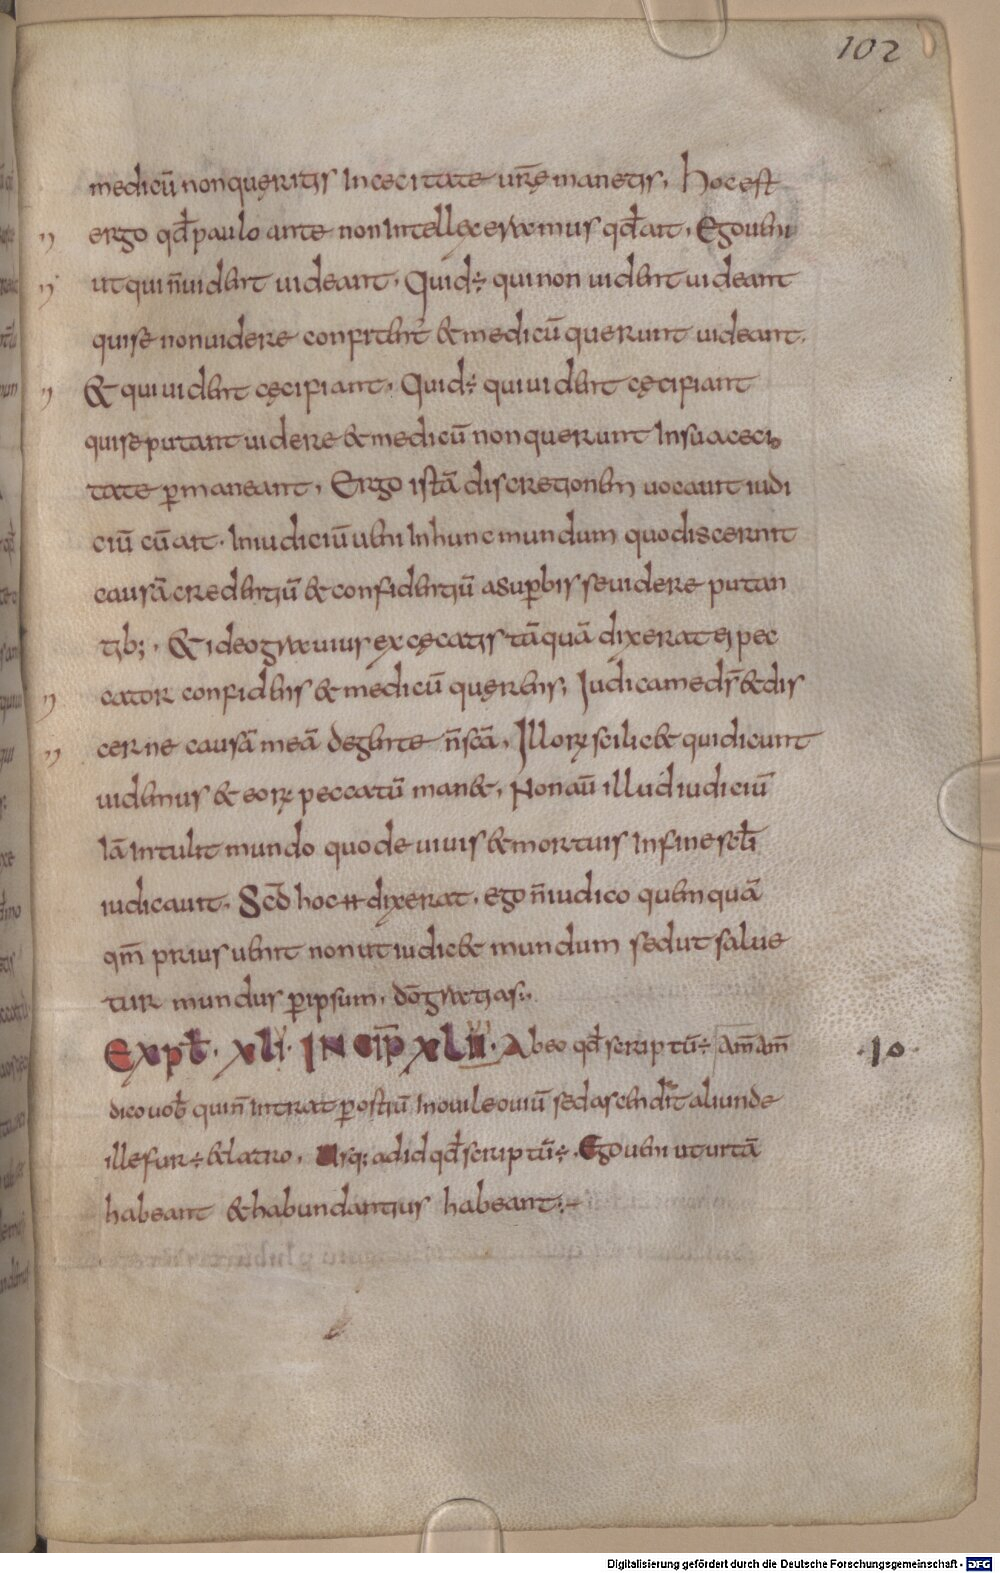 102
medicū non quęritis In cecitate ur̄ę manetis, Hoc est
ergo qd̄ paulo ante non Intellexeramus qd̄ ait, Ego ueni
ut qui n̄ uident uideant, Quid ÷ qui non uident uideant
qui se non uidere confitent̄ & medicū querunt uideant.
& qui uident cęci fiant, Quid ÷ qui uident cęci fiant
qui se putant uidere & medicū non querunt In sua ceci
tate p̄maneant, Ergo istā discretionem uocauit iudi
ciū cū ait. In iudiciū ueni In hunc mundum quo discernit
causā credentiū & confidentiū a sup̄bis se uidere putan
tib;, & ideo grauius excęcatis tāquā dixerat ei pec
cator confidens & medicū quęrens, Iudica me ds̄ & dis
cerne causā meā de gente n̄ scā, Illorꝝ scilic& qui dicunt
uidemus & eorꝝ peccatū man&, Non aū illud iudiciū
Iā Intulit mundo quo de uiuis & mortuis In fine sc̄li
iudicauit. Sed hoc ͛ dixerat, ego n̄ iudico quemquā
qm̄ prius uenit non ut iudic& mundum sed ut salue
tur mundus p̄ ipsum, dō gratias:,
Expl̄. xli. INCIP̄ xlii. Ab eo qd̄ scriptū ÷ am̄ am̄
.10.
dico uob̄ qui n̄ Intrat p̄ ostiū In ouile ouiū sed ascendit aliunde
ille fur ÷ & latro. Usq; ad id qd̄ scriptū ÷. Ego ueni ut uitā
habeant & habundantius habeant:
Digitalisierung gefördert durch die Deutsche Forschungsgemeinschaft - DFG